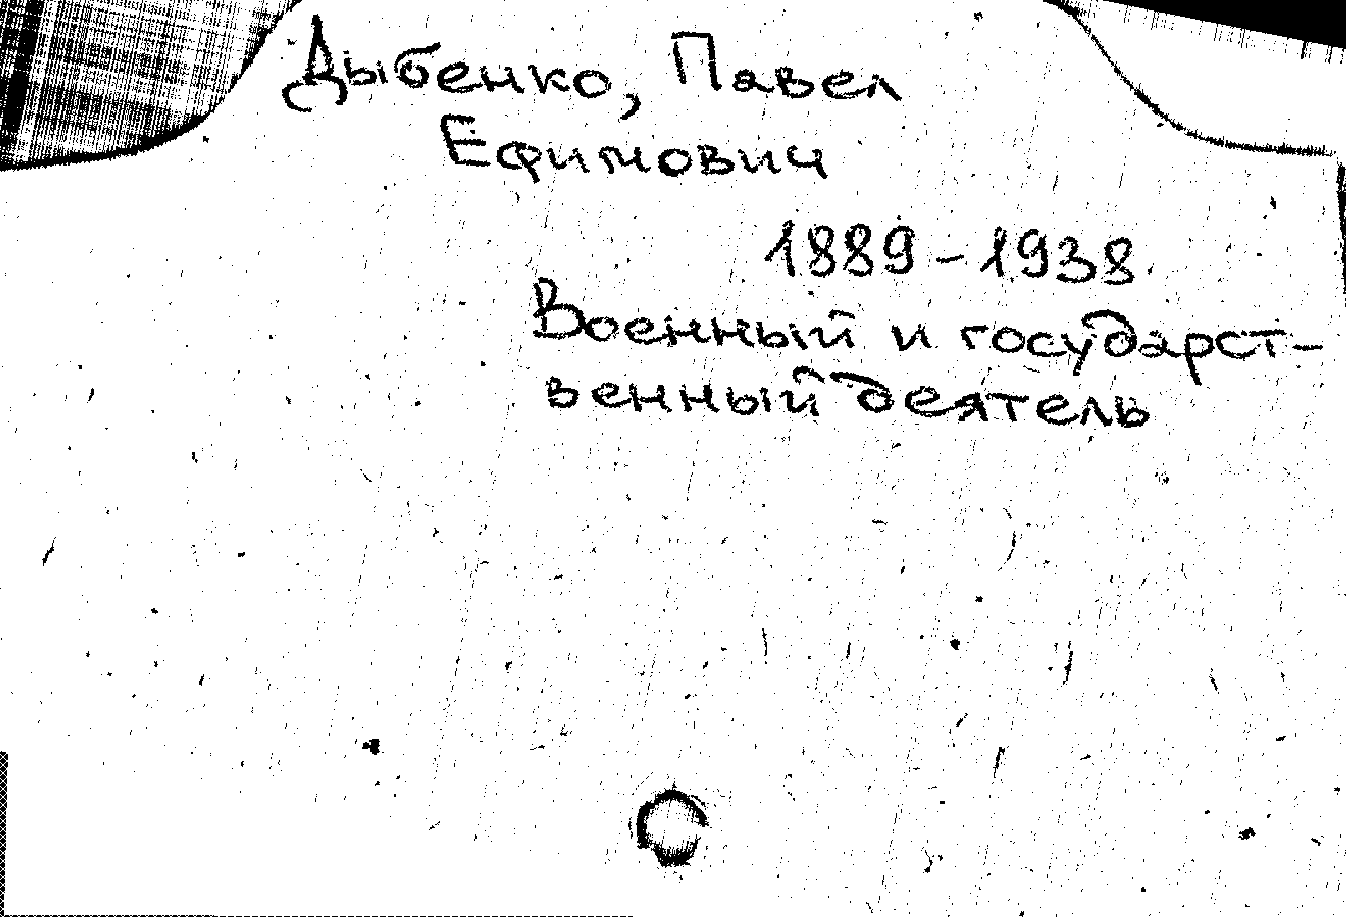 Дыбенко, Павел
Ефимович
1889-1938
Военный и государст-
венный деятель